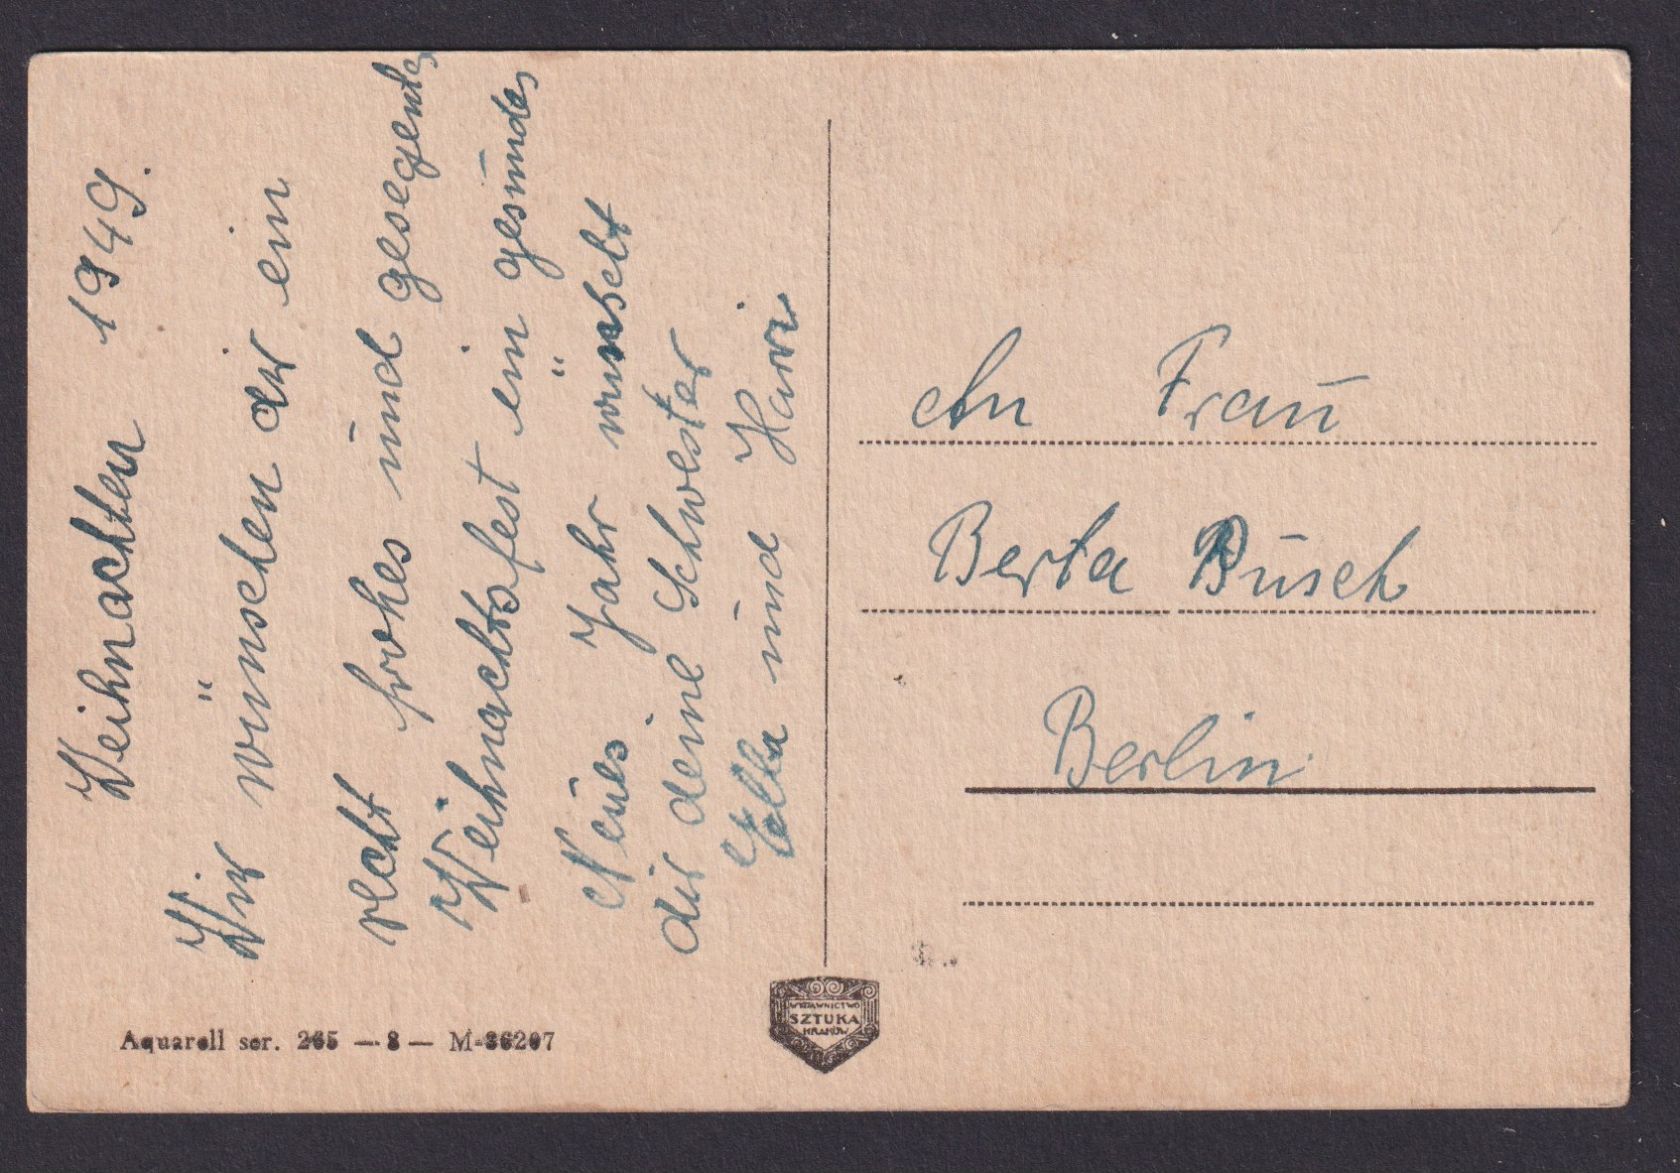 Weihnachten 1949.
Wir wünschen dir ein
recht frohes und gesegentes
Weihnachtsfest ein gesundes
Neues Jahr wünscht
dir deine Schwester
Ella und Harri
An Frau
Berta Busch
Berlin
WYDAWNICTWO
SZTUKA
KRAKÓW
Aquarell ser. 265 — 8 — M-36207